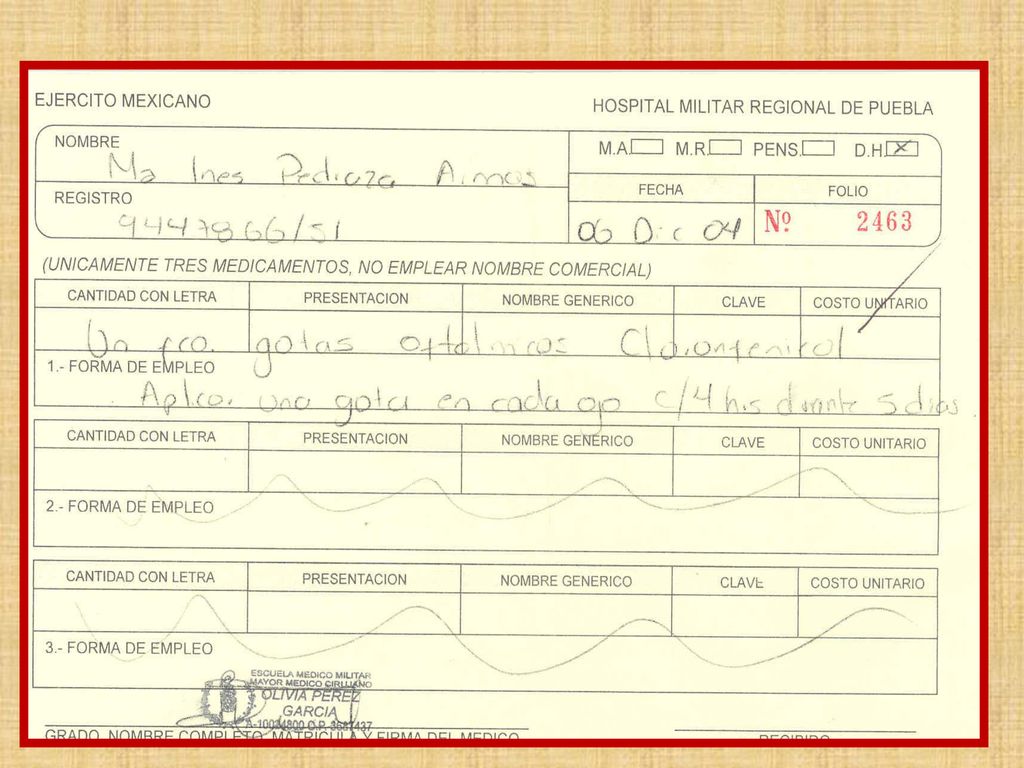 EJERCITO MEXICANO
HOSPITAL MILITAR REGIONAL DE PUEBLA
NOMBRE
Ma Ines Pedraza Armas
M.A. M.R. PENS. D.H. X
REGISTRO
9447866/51
FECHA FOLIO
06 Dic 04 Nº 2463
(UNICAMENTE TRES MEDICAMENTOS, NO EMPLEAR NOMBRE COMERCIAL)
CANTIDAD CON LETRA PRESENTACION NOMBRE GENERICO CLAVE COSTO UNITARIO
Un fco. gotas oftalmicas Cloranfenicol
1.- FORMA DE EMPLEO
Aplicar una gota en cada ojo c/4 hrs durante 5 dias.
CANTIDAD CON LETRA PRESENTACION NOMBRE GENERICO CLAVE COSTO UNITARIO
2.- FORMA DE EMPLEO
CANTIDAD CON LETRA PRESENTACION NOMBRE GENERICO CLAVE COSTO UNITARIO
3.- FORMA DE EMPLEO
ESCUELA MEDICO MILITAR
MAYOR MEDICO CIRUJANO
OLIVIA PEREZ
GARCIA
GRADO, NOMBRE COMPLETO, MATRICULA Y FIRMA DEL MEDICO
RECIBIDO